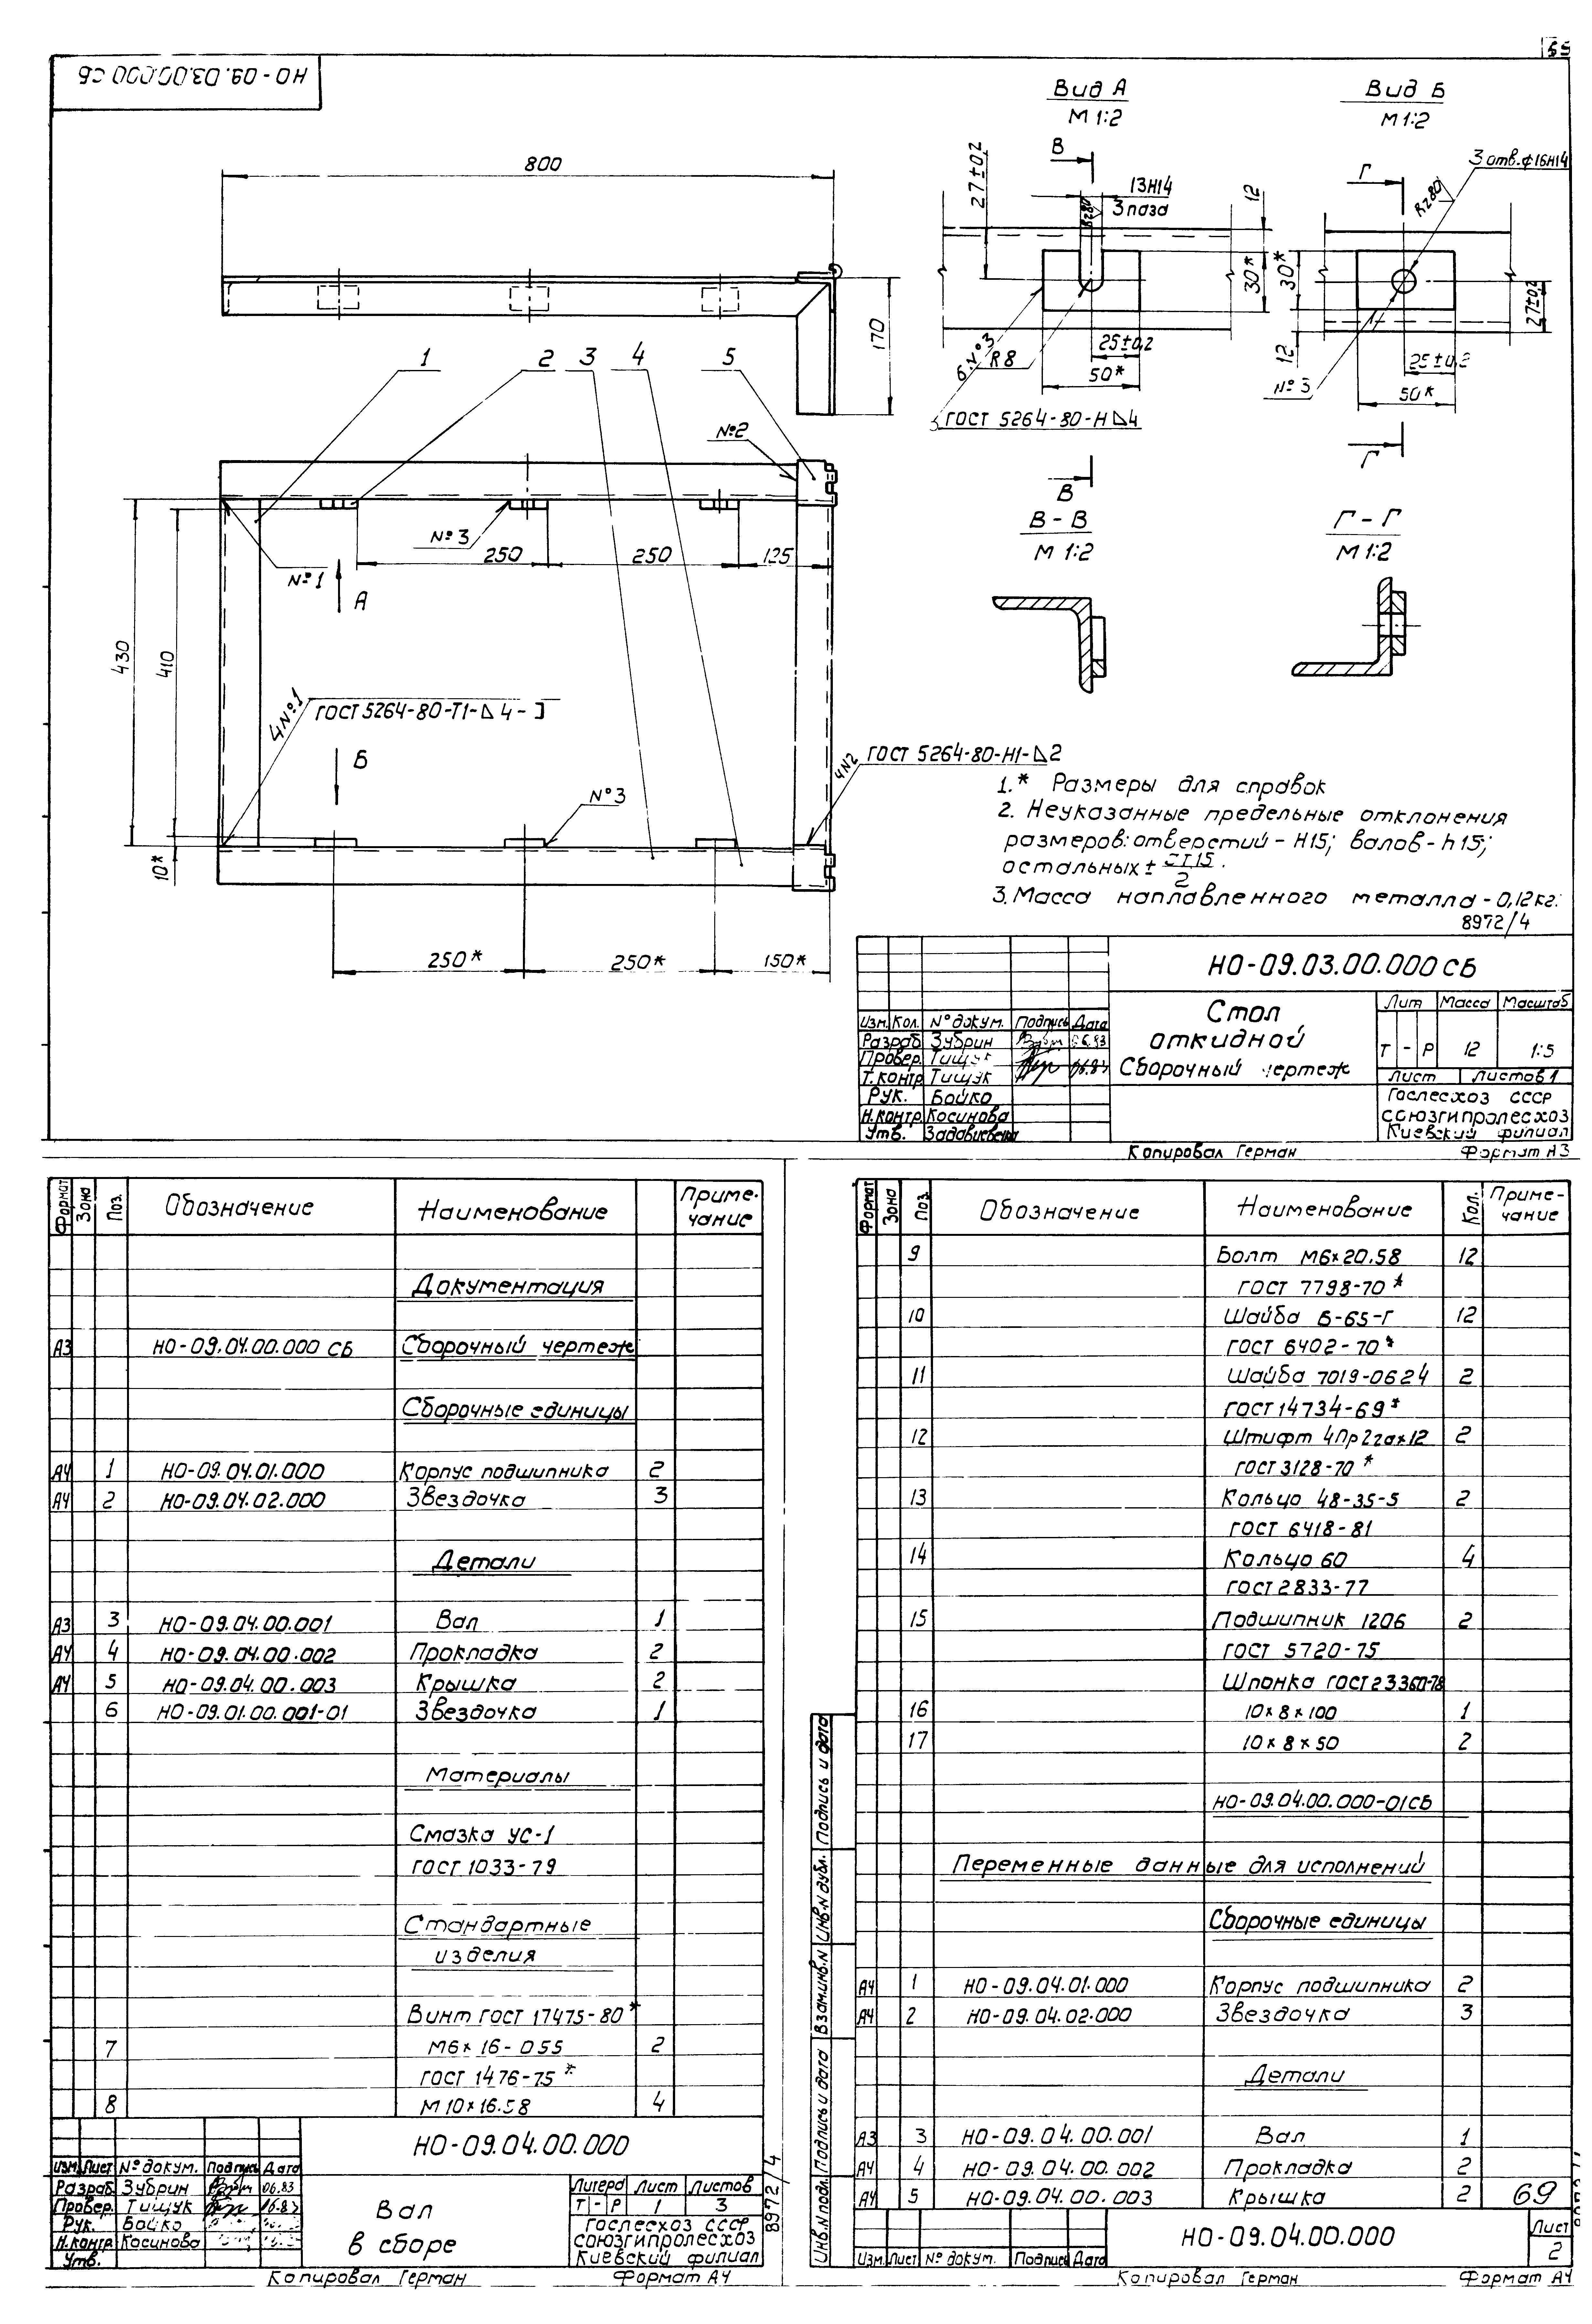 НО-09.03.00.000 СБ
69
Вид А
М 1:2
Вид Б
М 1:2
800
170
1
2
3
4
5
№2
№3
250
250
125
№1
А
430
410
4№1
ГОСТ 5264-80-Т1-◺4-⊐
Б
№3
10*
4№2
ГОСТ 5264-80-Н1-◺2
250*
250*
150*
В
27±0,2
13Н14
3 паза
Rz80
12
30*
6№3
R8
25±0,2
50*
ГОСТ 5264-80-Н◺4
В
Г
3 отв. ф16Н14
Rz80
30*
27±0,2
12
№3
25±0,2
50*
Г
В-В
М 1:2
Г-Г
М 1:2
1.* Размеры для справок
2. Неуказанные предельные отклонения
размеров: отверстий - Н15; валов - h15;
остальных ± IT15/2.
3. Масса наплавленного металла - 0,12кг.
8972/4
НО-09.03.00.000 СБ
Стол
откидной
Сборочный чертеж
Лит Масса Масштаб
Т - Р 12 1:5
Лист Листов 1
Гослесхоз СССР
Союзгипролесхоз
Киевский филиал
Изм. Кол. № докум. Подпись Дата
Разраб Зубрин 06.83
Провер. Тищук 06.83
Т. контр Тищук
Рук. Бойко
Н.контр. Косинова
Утв.
Копировал Герман Формат А3
Формат Зона Поз. Обозначение Наименование Приме-чание
Документация
А3 НО-09.04.00.000 СБ Сборочный чертеж
Сборочные единицы
А4 1 НО-09.04.01.000 Корпус подшипника 2
А4 2 НО-09.04.02.000 Звездочка 3
Детали
А3 3 НО-09.04.00.001 Вал 1
А4 4 НО-09.04.00.002 Прокладка 2
А4 5 НО-09.04.00.003 Крышка 2
6 НО-09.01.00.001-01 Звездочка 1
Материалы
Смазка УС-1
ГОСТ 1033-79
Стандартные
изделия
Винт ГОСТ 17475-80*
7 М6×16-055 2
ГОСТ 1476-75*
8 М10×16.58 4
НО-09.04.00.000
Изм. Лист № докум. Подпись Дата
Разраб Зубрин 06.83
Провер. Тищук 06.83
Рук. Бойко
Н.контр Косинова
Утв.
Вал
в сборе
Литера Лист Листов
Т - Р 1 3
Гослесхоз СССР
Союзгипролесхоз
Киевский филиал
8972/4
Копировал Герман Формат А4
Формат Зона Поз. Обозначение Наименование Кол. Приме-чание
9 Болт М6×20.58 12
ГОСТ 7798-70*
10 Шайба 6-65-Г 12
ГОСТ 6402-70*
11 Шайба 7019-0624 2
ГОСТ 14734-69*
12 Штифт 4Пр22а×12 2
ГОСТ 3128-70*
13 Кольцо 48-35-5 2
ГОСТ 6418-81
14 Кольцо 60 4
ГОСТ 2833-77
15 Подшипник 1206 2
ГОСТ 5720-75
Шпонка ГОСТ 23360-78
16 10×8×100 1
17 10×8×50 2
НО-09.04.00.000-01СБ
Переменные данные для исполнений
Сборочные единицы
А4 1 НО-09.04.01.000 Корпус подшипника 2
А4 2 НО-09.04.02.000 Звездочка 3
Детали
А3 3 НО-09.04.00.001 Вал 1
А4 4 НО-09.04.00.002 Прокладка 2
А4 5 НО-09.04.00.003 Крышка 2
69
Инв.N подл. Подпись и дата Взам.инв.N Инв.N дубл. Подпись и дата
Изм. Лист № докум. Подпись Дата
НО-09.04.00.000
Лист
2
Копировал Герман Формат А4